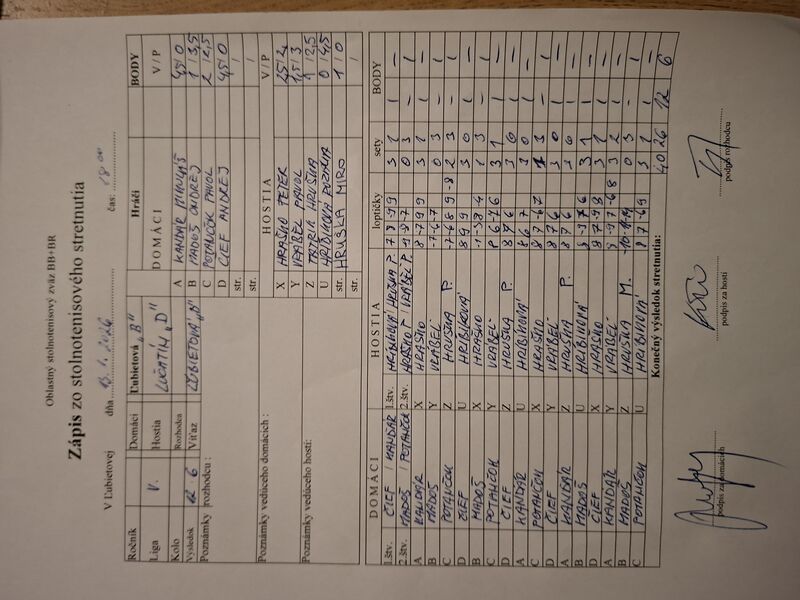 Oblastný stolnotenisový zväz BB+BR
Zápis zo stolnotenisového stretnutia
V Ľubietovej dňa 1. 2026 čas: 18:00
Ročník Domáci Ľubietová „B"
Liga V. Hostia LUČATÍN „D"
Kolo Rozhodca
Výsledok 12 : 6 Víťaz ĽUBIETOVÁ „B"
Poznámky rozhodcu :
Hráči BODY
DOMÁCI V / P
A KANDÁR 4,5 / 0
B MADOŠ ONDREJ 1 / 3,5
C POTANČOK PAVOL 2 / 2,5
D CIEF ANDREJ 4,5 / 0
str. /
str. /
Poznámky vedúceho domácich :
HOSTIA V / P
X HRAŠKO PETER
Y VRÁBEL PAVOL 1,5 / 3
Z HRUŠKA / 2,5
U HRIBINOVÁ 0 / 4,5
str. HRUŠKA MIRO 1 / 0
str. /
Poznámky vedúceho hostí:
DOMÁCI HOSTIA loptičky sety BODY
1.štv. CIEF / KANDÁR 1.štv. HRIBINOVÁ / HRUŠKA P. 7 8 -9 9 3 1 1 –
2.štv. MADOŠ / POTANČOK 2.štv. HRAŠKO P. / VRÁBEL P. 0 3 – 1
A KANDÁR X HRAŠKO 3 1 1 –
B MADOŠ Y VRÁBEL -7 -6 -7 0 3 – 1
C POTANČOK Z HRUŠKA P. -7 -6 8 9 -8 2 3 – 1
D CIEF U HRIBINOVÁ 8 9 9 3 0 1 –
B MADOŠ X HRAŠKO 1 3 – 1
C POTANČOK Y VRÁBEL 3 1 1 –
D CIEF Z HRUŠKA P. 8 7 6 3 0 1 –
A KANDÁR U HRIBINOVÁ 8 6 7 3 0 1 –
C POTANČOK X HRAŠKO 1 3 – 1
D CIEF Y VRÁBEL 8 7 6 3 0 1 –
A KANDÁR Z HRUŠKA P. 8 7 6 3 0 1 –
B MADOŠ U HRIBINOVÁ 3 1 1 –
D CIEF X HRAŠKO 3 1 1 –
A KANDÁR Y VRÁBEL 9 -9 7 -6 8 3 2 1 –
B MADOŠ Z HRUŠKA M. 0 3 – 1
C POTANČOK U HRIBINOVÁ 8 7 -6 9 3 1 1 –
Konečný výsledok stretnutia: 40 26 12 6
podpis za domácich
podpis za hostí
podpis rozhodcu